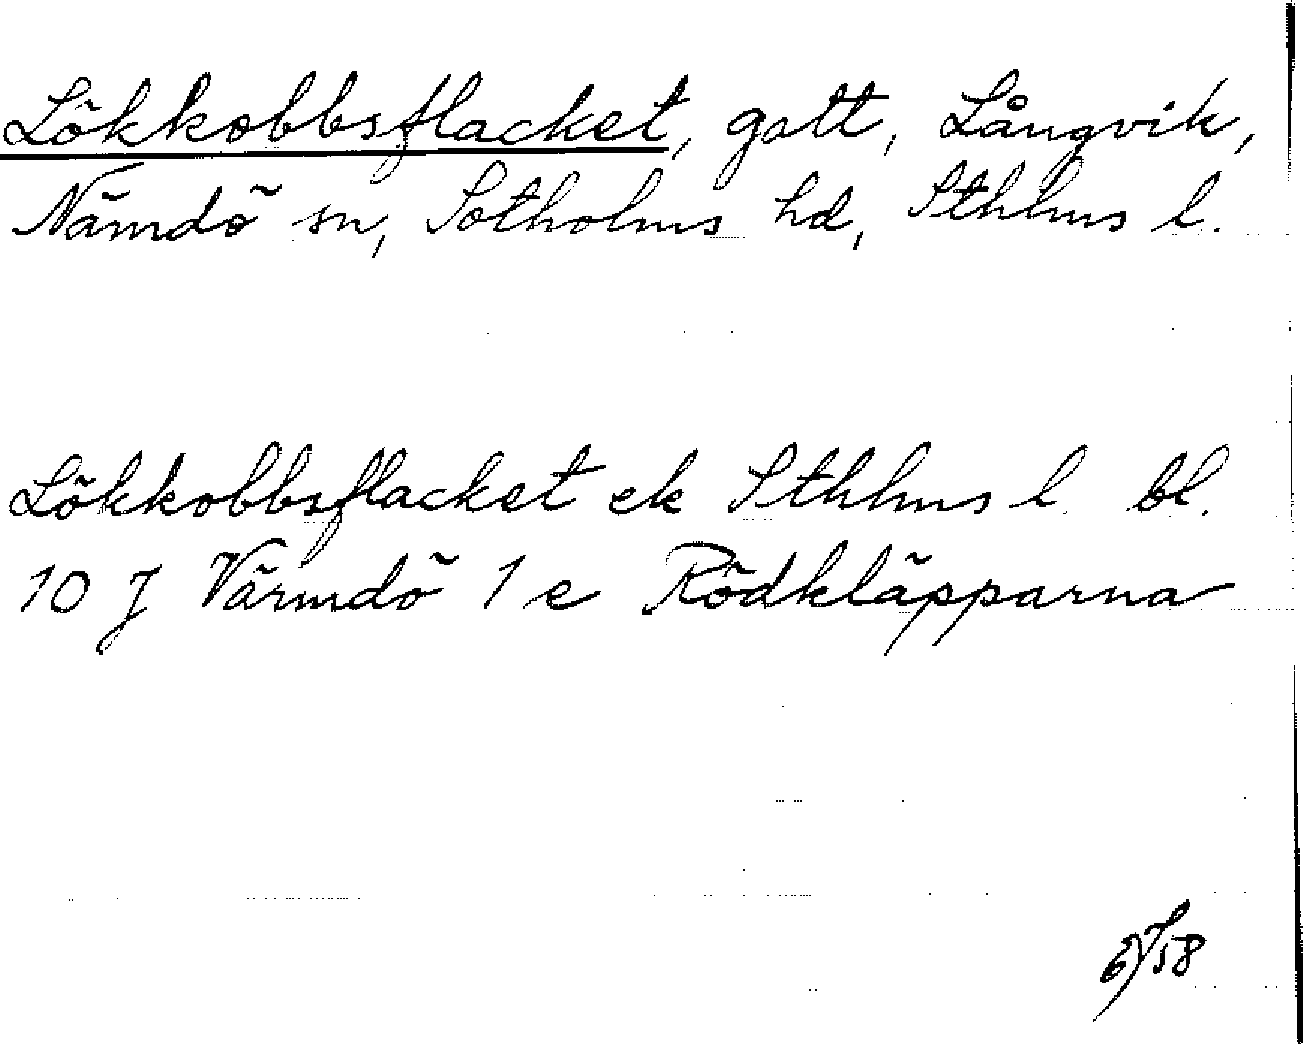 Lökkobbsflacket, gatt, Långvik,
Nämdö sn, Sotholms hd, Sthlms l.
Lökkobbsflacket ek Sthlms l bl.
10 J Värmdö 1 e Rödkläpparna